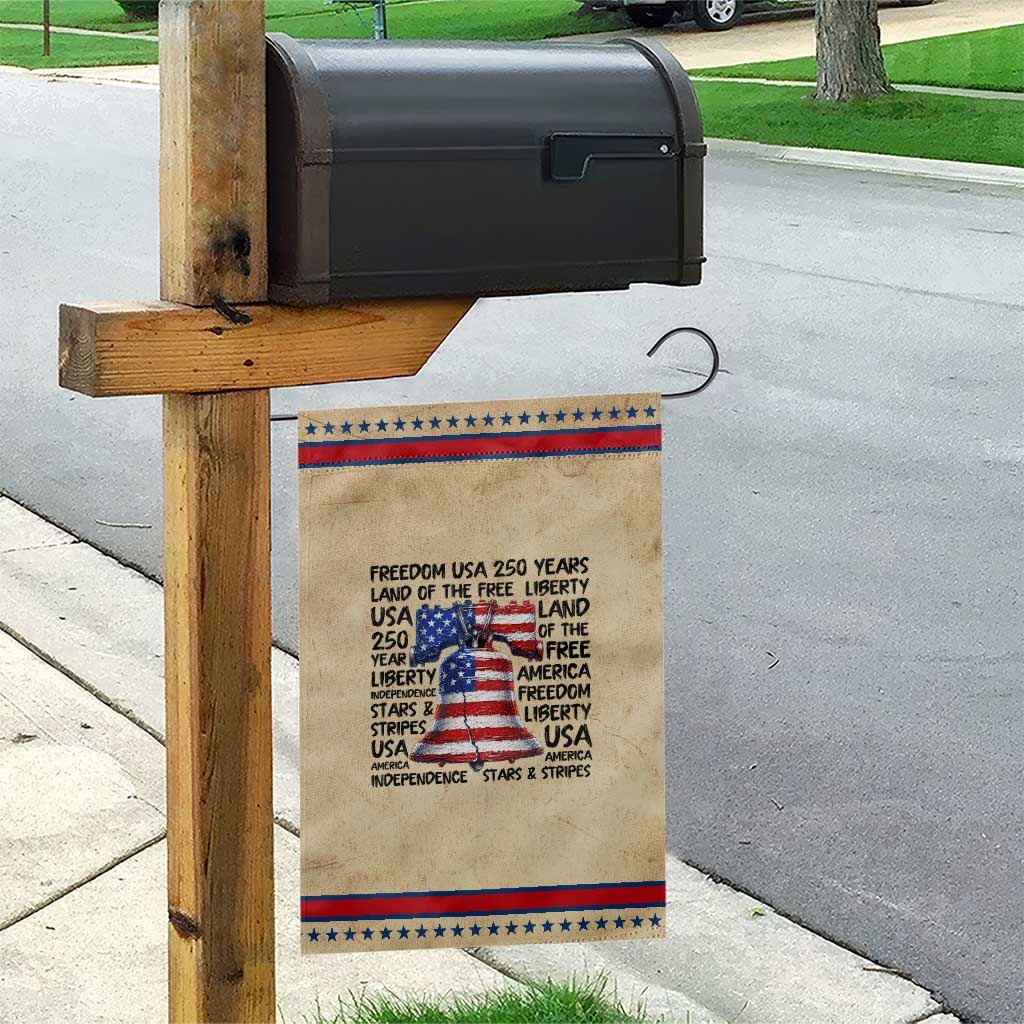 FREEDOM USA 250 YEARS
LAND OF THE FREE LIBERTY
USA
250
YEAR
LIBERTY
INDEPENDENCE
STARS &
STRIPES
USA
AMERICA
INDEPENDENCE
LAND
OF THE
FREE
AMERICA
FREEDOM
LIBERTY
USA
AMERICA
STARS & STRIPES